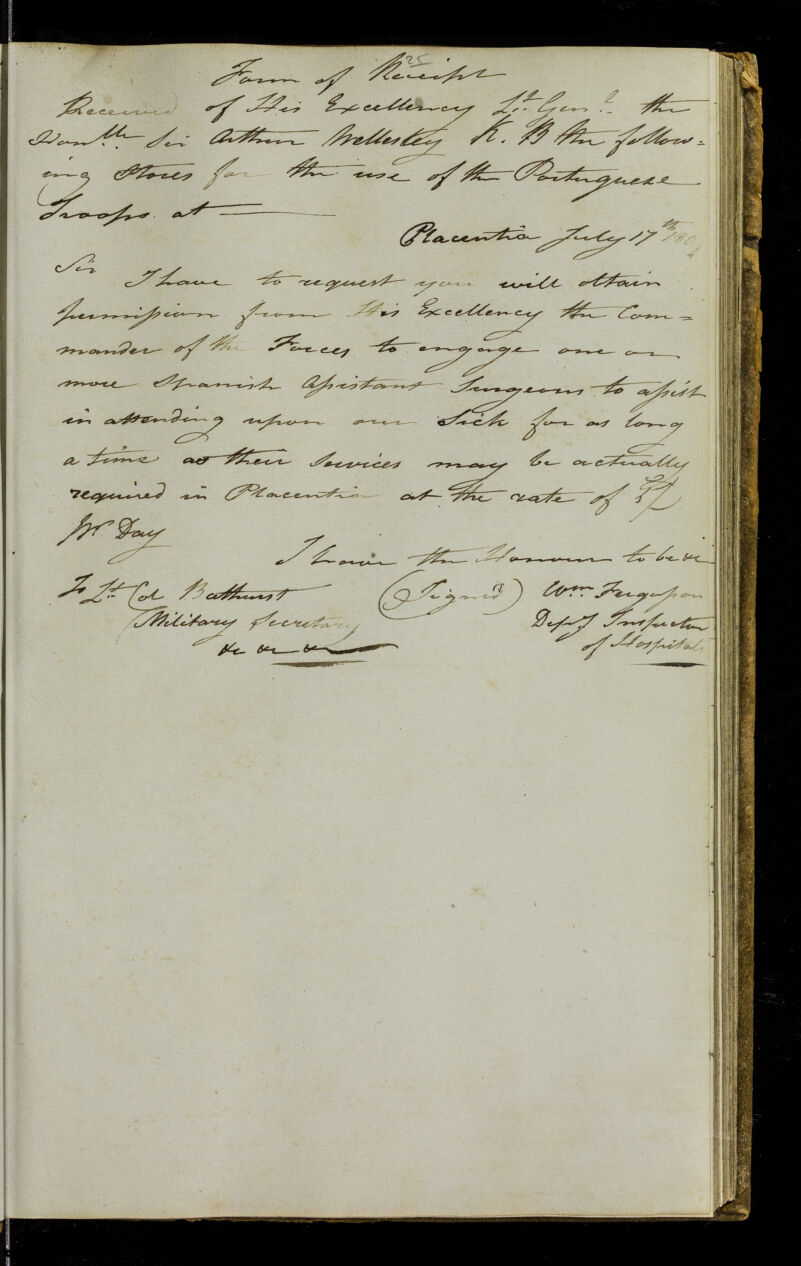 25
Form of Receipt
Received of His Excellency Lt. Genl. the
Honble. Sir Arthur Wellesley K. B the follow=
ing Stores for the use of the Portuguese
Troops at ———
Placentia July 17th 1809
Sir
I have to request you will obtain
permission from His Excellency the Com=
mander of the Forces to engage one or
more Spanish Assistant Surgeons to assist
in attending upon our Sick for as long
a time as their Services may be actually
required in Placentia at the rate of
Pr Day
I have the Honour to be &c
To Lt. Col Bathurst (Signed) Wm. Fergusson
Military Secretary Depy Inspector
&c &c &c of Hospitals